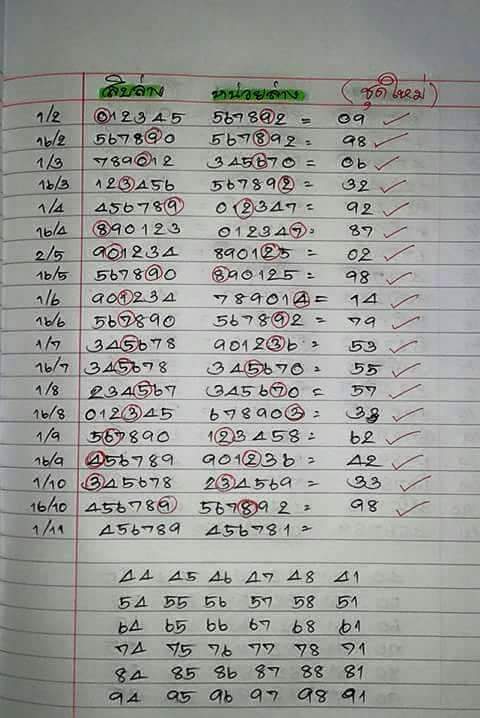 สิบล่าง หน่วยล่าง (ชุดใหม่)
1/2 012345 567892 = 09 ✓
16/2 567890 567892 = 98 ✓
1/3 789012 345670 = 06 ✓
16/3 123456 567892 = 32 ✓
1/4 456789 012347 = 92 ✓
16/4 890123 012347 = 87 ✓
2/5 901234 890125 = 02 ✓
16/5 567890 890125 = 98 ✓
1/6 901234 789014 = 14 ✓
16/6 567890 567892 = 79 ✓
1/7 345678 901236 = 53 ✓
16/7 345678 345670 = 55 ✓
1/8 234567 345670 = 57 ✓
16/8 012345 678903 = 33 ✓
1/9 567890 123458 = 62 ✓
16/9 456789 901236 = 42 ✓
1/10 345678 234569 = 33 ✓
16/10 456789 567892 = 98 ✓
1/11 456789 456781 =
44 45 46 47 48 41
54 55 56 57 58 51
64 65 66 67 68 61
74 75 76 77 78 71
84 85 86 87 88 81
94 95 96 97 98 91